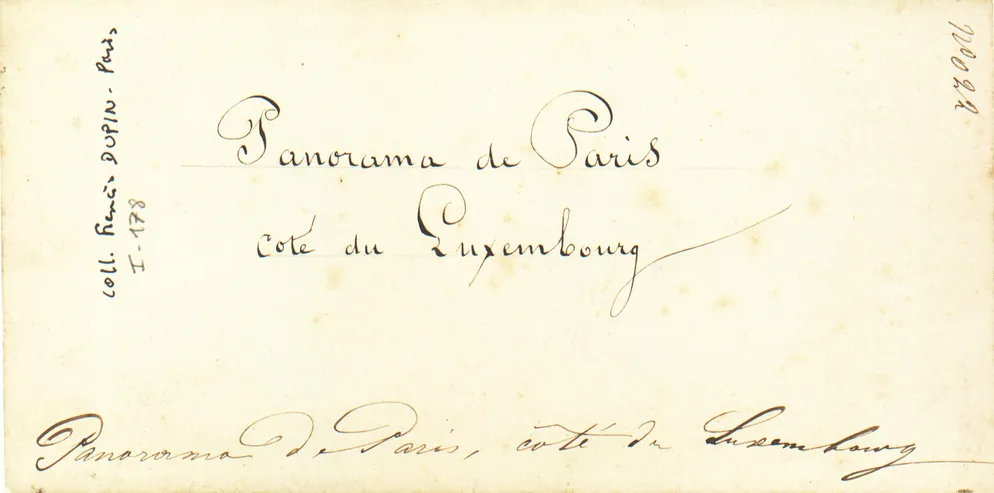 coll. Francis DUPIN - Paris
I-178
No 22
Panorama de Paris
coté du Luxembourg
Panorama de Paris, côté du Luxembourg